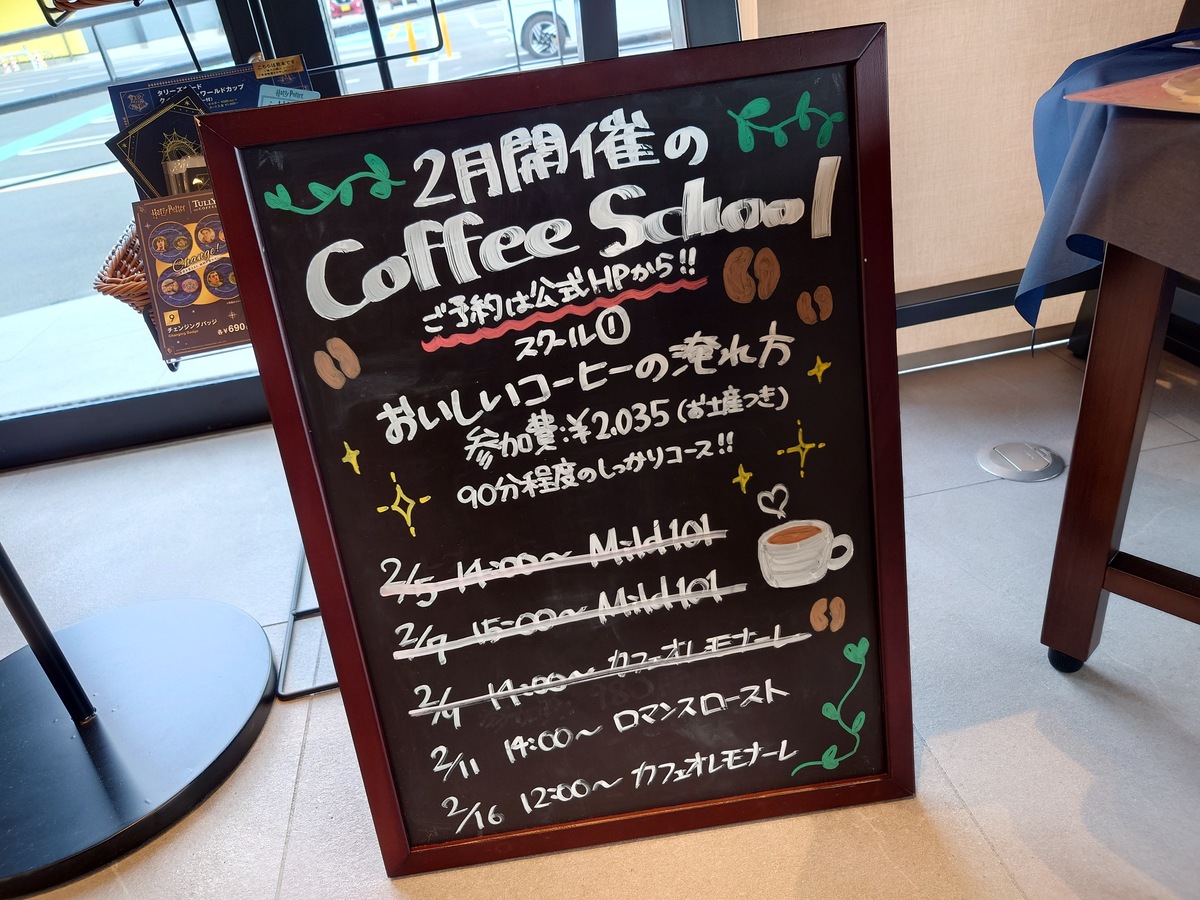 2月開催の
Coffee School
ご予約は公式HPから!!
スクール①
おいしいコーヒーの淹れ方
参加費:¥2.035 (お土産つき)
90分程度のしっかりコース!!
2/5 14:00〜 Mild101
2/7 15:00〜 Mild101
14:00〜 カフェオレモナーレ
2/11 14:00〜 ロマンスロースト
2/16 12:00〜 カフェオレモナーレ
タリーズカード
ワールドカップ
Harry Potter
Harry Potter TULLY
Change!
9
チェンジングバッジ
Changing Badge
各¥690